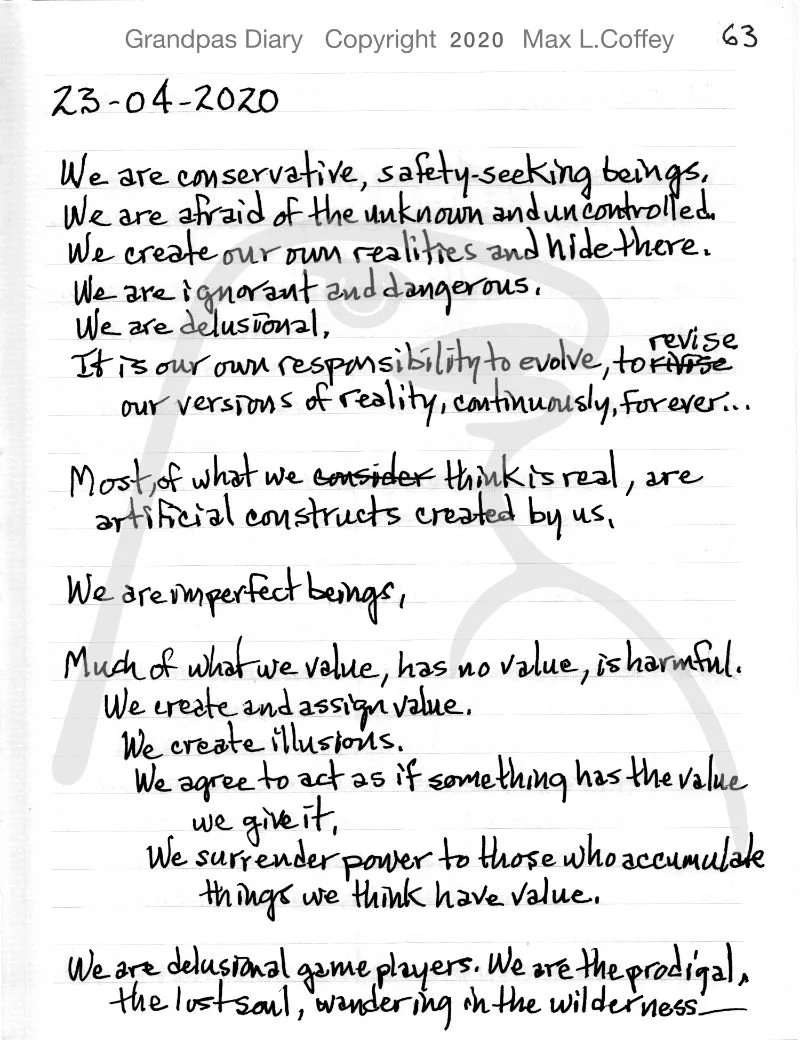 Grandpas Diary Copyright 2020 Max L.Coffey 63
23-04-2020
We are conservative, safety-seeking beings.
We are afraid of the unknown and uncontrolled.
We create our own realities and hide there.
We are ignorant and dangerous.
We are delusional,
revise
It is our own responsibility to evolve, to rivise
our versions of reality, continuously, forever...
Most, of what we consider think is real, are
artificial constructs created by us,
We are imperfect beings,
Much of what we value, has no value, is harmful.
We create and assign value.
We create illusions.
We agree to act as if something has the value
we give it,
We surrender power to those who accumulate
things we think have value.
We are delusional game players. We are the prodigal,
the lost soul, wandering in the wilderness—